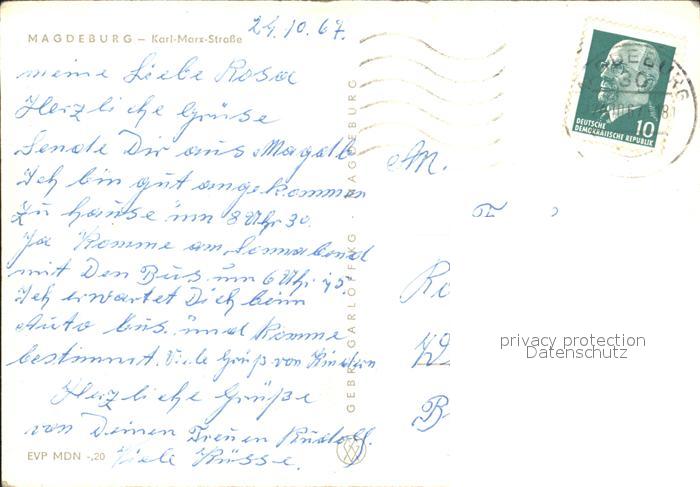 MAGDEBURG – Karl-Marx-Straße
24.10.67.
meine Liebe Rosa
Herzliche Grüse
Sende Dir aus Magdb
Ich bin gut angekommen
Zu hause um 8 Uhr 30.
Ja komme am Sonnabend
mit Den Bus um 6 Uhr 45
Ich erwartet Dich beim
Auto bus. und komme
bestimmt. Viele Grüß von Kindern
Herzliche Grüße
von Deinen Treuen Rudolf.
Viele Küsse.
EVP MDN -,20
GEBR. GARLOFF KG. MAGDEBURG
An.
DEUTSCHE
DEMOKRATISCHE REPUBLIK
10
privacy protection
Datenschutz